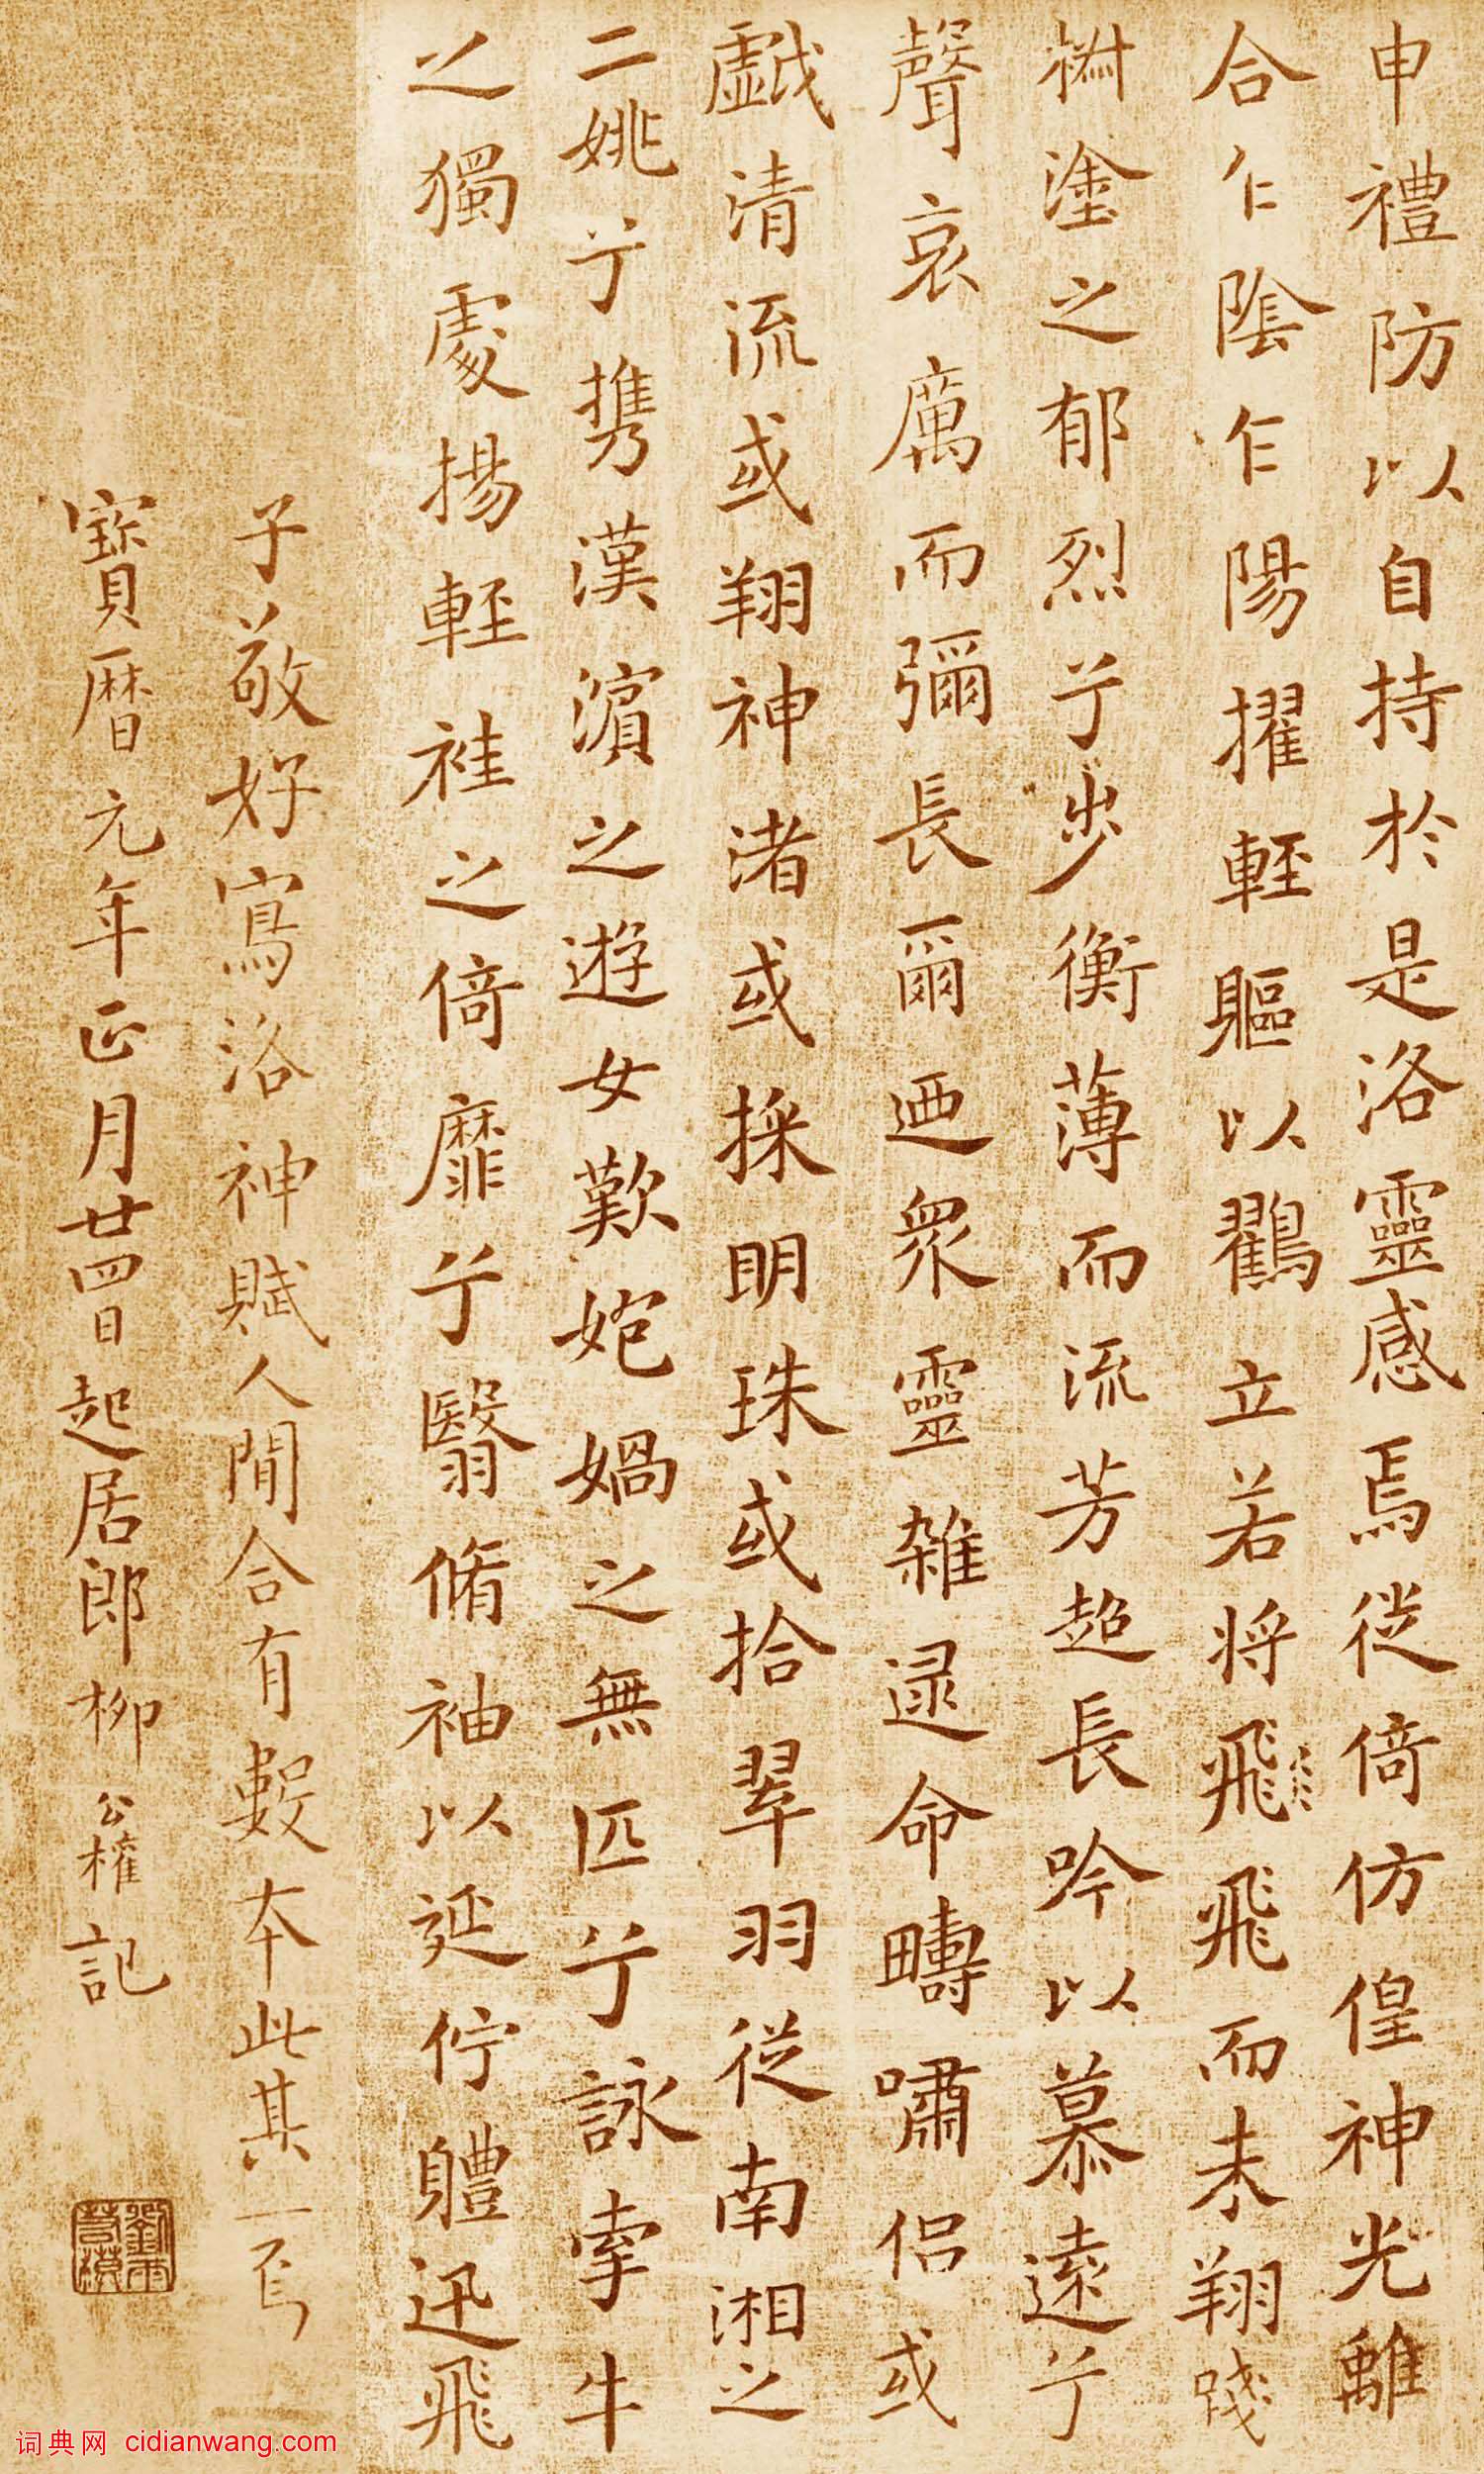 申禮防以自持於是洛靈感焉從倚仿偟神光離
合乍陰乍陽擢輕軀以鸛立若将飛飛而未翔踐
椒塗之郁烈兮步衡薄而流芳超長吟以慕遠兮
聲哀厲而彌長爾迺衆靈雜遝命疇嘯侣或
戲清流或翔神渚或採明珠或拾翠羽從南湘之
二姚兮携漢濱之遊女歎㚿媧之無匹兮詠牽牛
之獨處揚輕袿之倚靡兮翳脩袖以延佇軆迅飛
子敬好寫洛神賦人間合有數本此其一焉
寶曆元年正月廿四日起居郎柳公權記
词典网 cidianwang.com